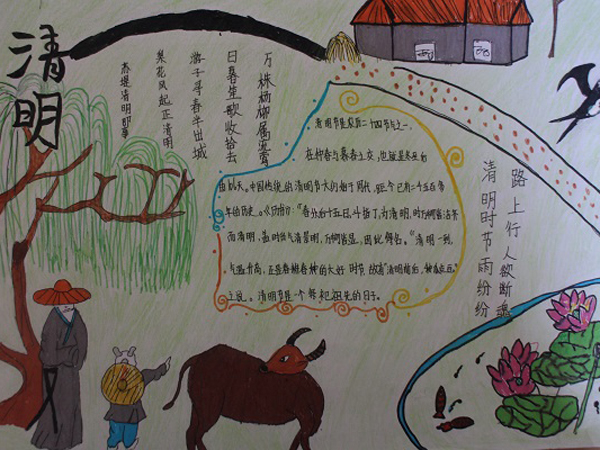 清明
苏堤清明即事
梨花风起正清明
游子寻春半出城
日暮笙歌收拾去
万株杨柳属流莺
清明节是农历二十四节气之一,
在仲春与暮春之交,也就是冬至后
的108天。中国传统的清明节大约始于周代,距今已有二千五百多
年的历史。《历书》:"春分后十五日,斗指丁,为清明,时万物皆洁齐
而清明,盖时当气清景明,万物皆显,因此得名。"清明一到,
气温升高,正是春耕春种的大好时节,故有"清明前后,种瓜点豆"
之说。清明节是一个祭祀祖先的日子。
清明时节雨纷纷
路上行人欲断魂